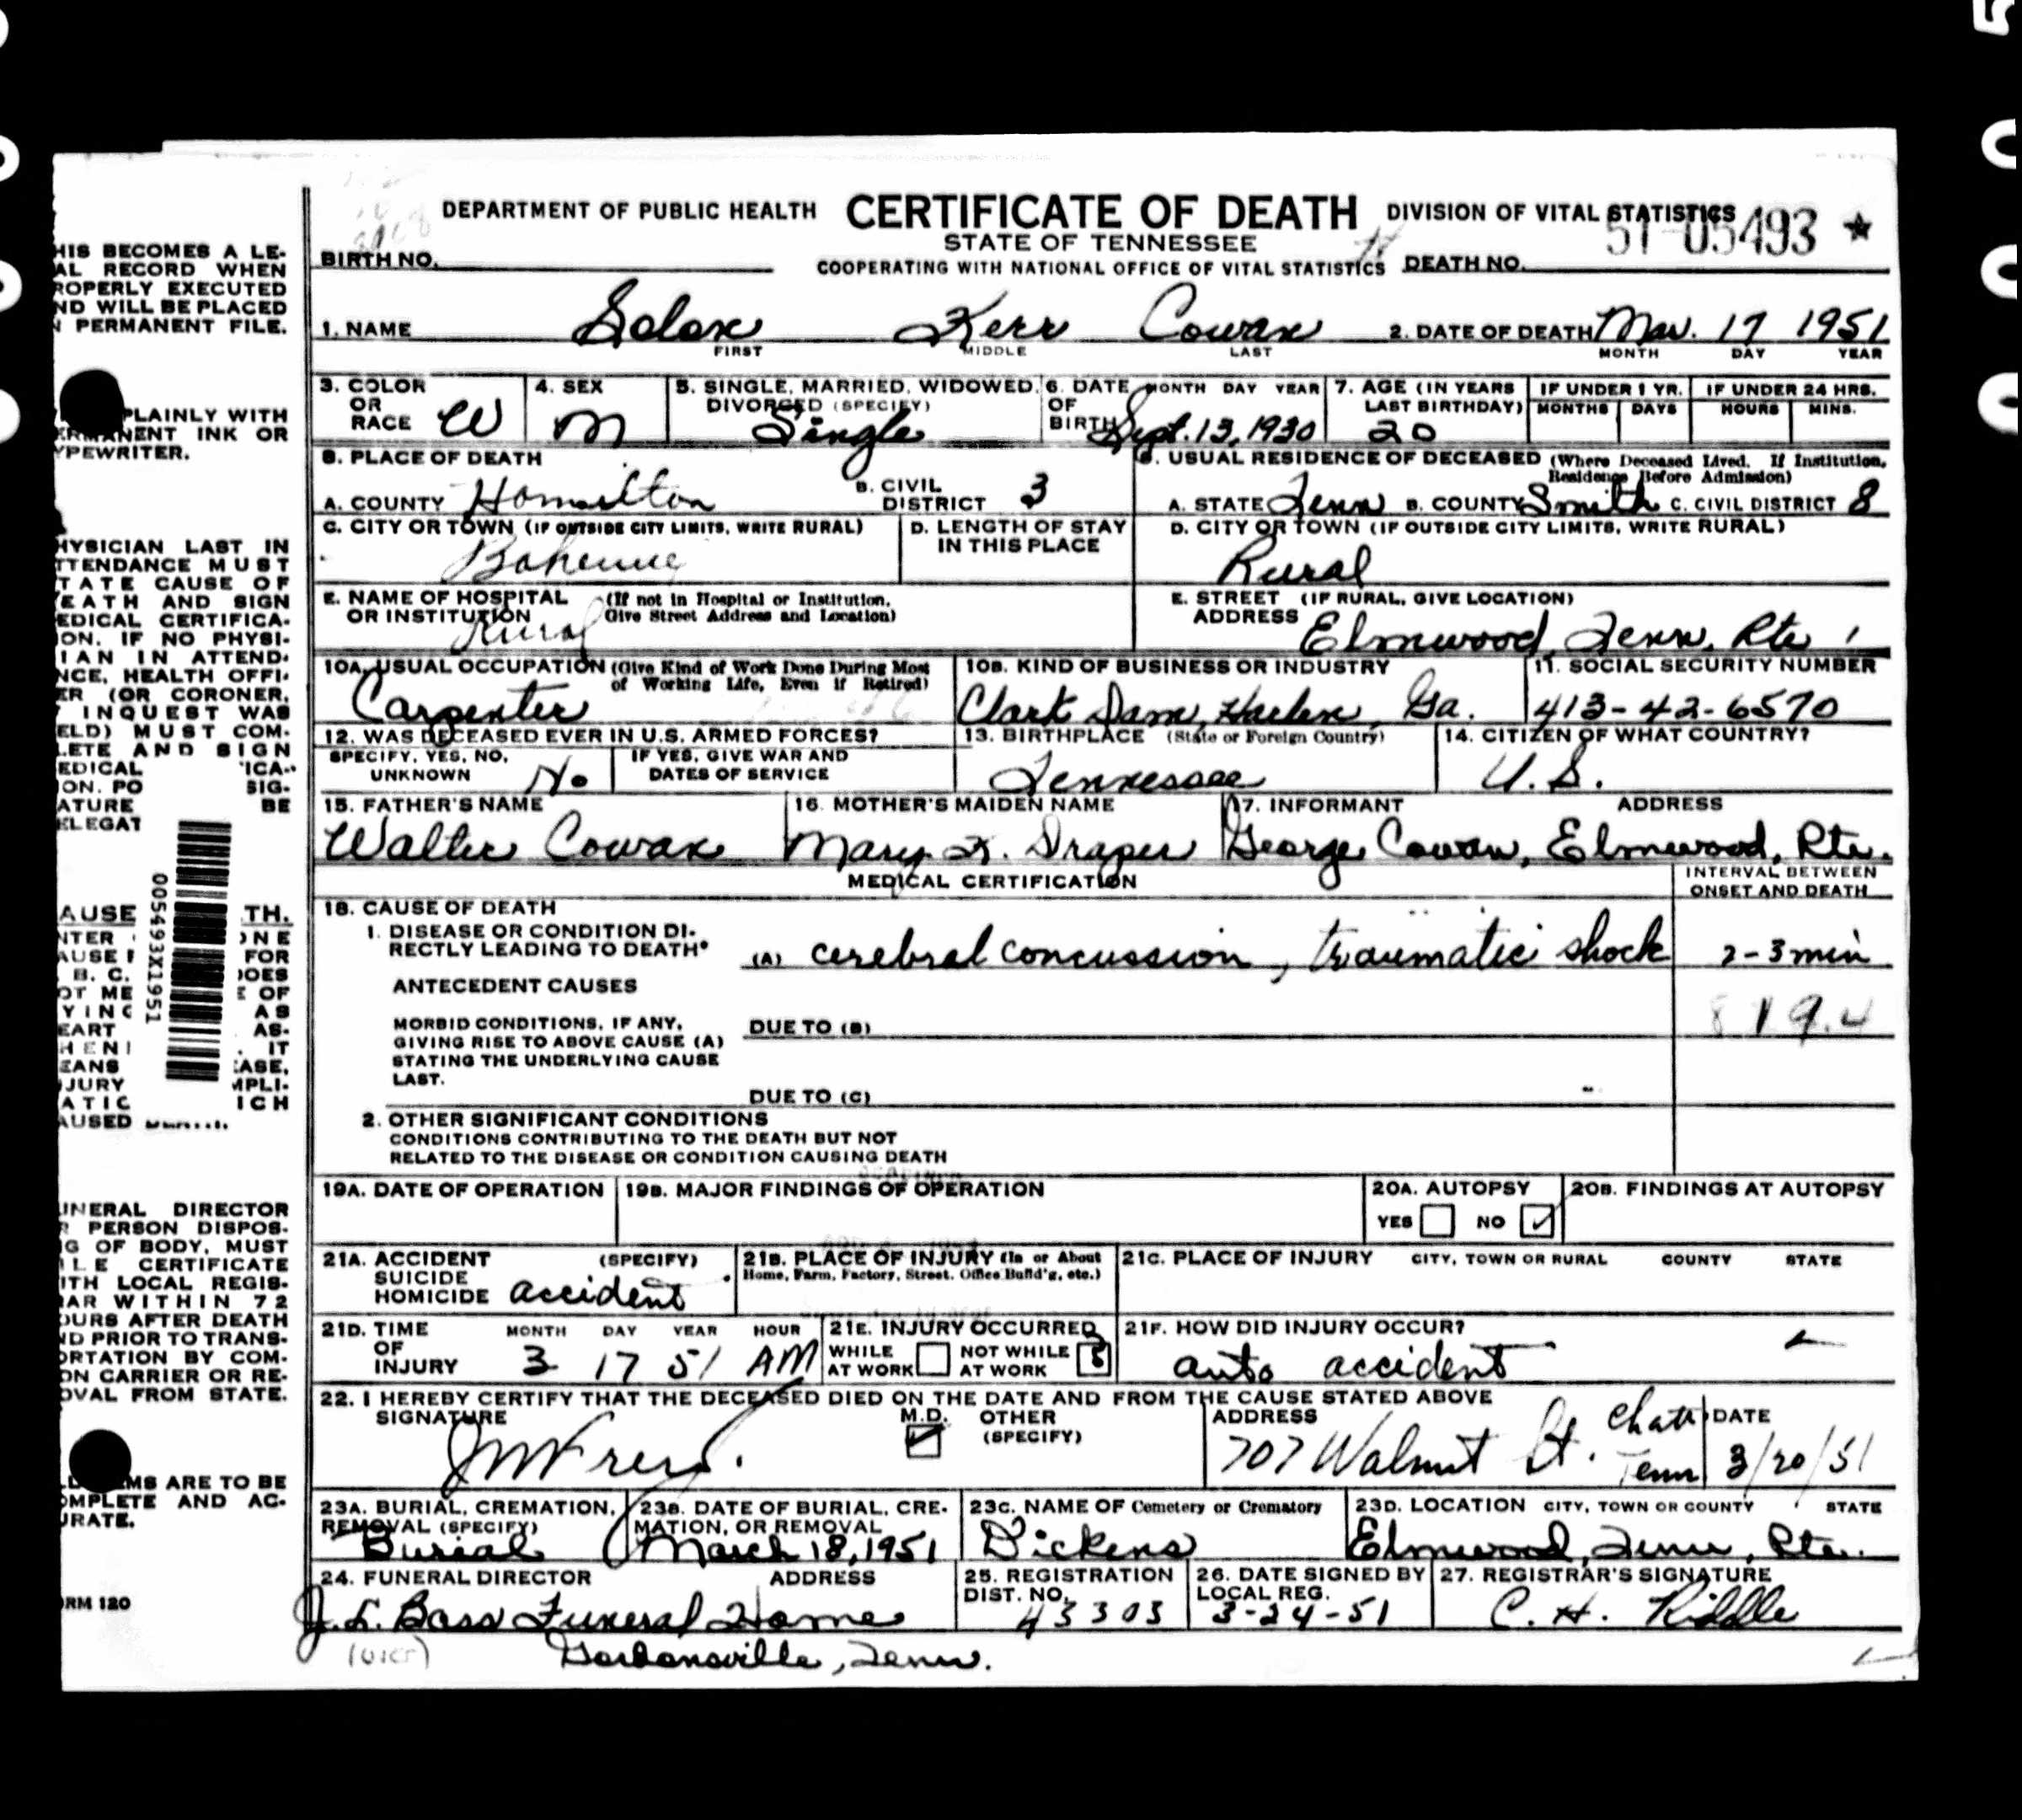 DEPARTMENT OF PUBLIC HEALTH CERTIFICATE OF DEATH DIVISION OF VITAL STATISTICS
STATE OF TENNESSEE 51 05493 ★
BIRTH NO. COOPERATING WITH NATIONAL OFFICE OF VITAL STATISTICS DEATH NO.
1. NAME Solon Kerr Cowan 2. DATE OF DEATH Mar. 17 1951
FIRST MIDDLE LAST MONTH DAY YEAR
3. COLOR OR RACE W 4. SEX M 5. SINGLE, MARRIED, WIDOWED, DIVORCED (SPECIFY) Single 6. DATE OF BIRTH MONTH DAY YEAR Sept. 13, 1930 7. AGE (IN YEARS LAST BIRTHDAY) 20 IF UNDER 1 YR. MONTHS DAYS IF UNDER 24 HRS. HOURS MINS.
8. PLACE OF DEATH
A. COUNTY Hamilton B. CIVIL DISTRICT 3
9. USUAL RESIDENCE OF DECEASED (Where Deceased Lived. If Institution, Residence Before Admission)
A. STATE Tenn B. COUNTY Smith C. CIVIL DISTRICT 8
C. CITY OR TOWN (IF OUTSIDE CITY LIMITS, WRITE RURAL) D. LENGTH OF STAY IN THIS PLACE
D. CITY OR TOWN (IF OUTSIDE CITY LIMITS, WRITE RURAL)
Rural
E. NAME OF HOSPITAL OR INSTITUTION (If not in Hospital or Institution, Give Street Address and Location)
Rural
E. STREET ADDRESS (IF RURAL, GIVE LOCATION)
Elmwood, Tenn. Rte 1
10A. USUAL OCCUPATION (Give Kind of Work Done During Most of Working Life, Even if Retired)
Carpenter
10B. KIND OF BUSINESS OR INDUSTRY
Clark Dam, Ga.
11. SOCIAL SECURITY NUMBER
413-42-6570
12. WAS DECEASED EVER IN U.S. ARMED FORCES?
SPECIFY, YES, NO, UNKNOWN No IF YES, GIVE WAR AND DATES OF SERVICE
13. BIRTHPLACE (State or Foreign Country)
Tennessee
14. CITIZEN OF WHAT COUNTRY?
U.S.
15. FATHER'S NAME
Walter Cowan
16. MOTHER'S MAIDEN NAME
Mary F. Draper
17. INFORMANT ADDRESS
George Cowan, Elmwood, Rte.
MEDICAL CERTIFICATION
INTERVAL BETWEEN ONSET AND DEATH
18. CAUSE OF DEATH
1. DISEASE OR CONDITION DIRECTLY LEADING TO DEATH* (A) cerebral concussion, traumatic shock 2-3 min
ANTECEDENT CAUSES
819.4
MORBID CONDITIONS, IF ANY, DUE TO (B)
GIVING RISE TO ABOVE CAUSE (A)
STATING THE UNDERLYING CAUSE
LAST.
DUE TO (C)
2. OTHER SIGNIFICANT CONDITIONS
CONDITIONS CONTRIBUTING TO THE DEATH BUT NOT
RELATED TO THE DISEASE OR CONDITION CAUSING DEATH
19A. DATE OF OPERATION 19B. MAJOR FINDINGS OF OPERATION 20A. AUTOPSY 20B. FINDINGS AT AUTOPSY
YES NO ✓
21A. ACCIDENT SUICIDE HOMICIDE (SPECIFY) accident
21B. PLACE OF INJURY (In or About Home, Farm, Factory, Street, Office Build'g, etc.)
21C. PLACE OF INJURY CITY, TOWN OR RURAL COUNTY STATE
21D. TIME OF INJURY MONTH DAY YEAR HOUR 3 17 51 AM
21E. INJURY OCCURRED WHILE AT WORK NOT WHILE AT WORK
21F. HOW DID INJURY OCCUR?
auto accident
22. I HEREBY CERTIFY THAT THE DECEASED DIED ON THE DATE AND FROM THE CAUSE STATED ABOVE
SIGNATURE M.D. ✓ OTHER (SPECIFY)
ADDRESS 707 Walnut St. Chatt Tenn DATE 3/20/51
23A. BURIAL, CREMATION, REMOVAL (SPECIFY)
Burial
23B. DATE OF BURIAL, CREMATION, OR REMOVAL
March 18, 1951
23C. NAME OF Cemetery or Crematory
Dickens
23D. LOCATION CITY, TOWN OR COUNTY STATE
Elmwood, Tenn, Rte.
24. FUNERAL DIRECTOR ADDRESS
J. L. Bass Funeral Home
Gordonsville, Tenn.
25. REGISTRATION DIST. NO.
43303
26. DATE SIGNED BY LOCAL REG.
3-24-51
27. REGISTRAR'S SIGNATURE
C. H. Riddle
HIS BECOMES A LE-
AL RECORD WHEN
ROPERLY EXECUTED
ND WILL BE PLACED
N PERMANENT FILE.
PLAINLY WITH
ERMANENT INK OR
YPEWRITER.
HYSICIAN LAST IN
TTENDANCE MUST
TATE CAUSE OF
EATH AND SIGN
EDICAL CERTIFICA-
ON. IF NO PHYSI-
IAN IN ATTEND-
NCE, HEALTH OFFI-
ER (OR CORONER,
INQUEST WAS
ELD) MUST COM-
LETE AND SIGN
EDICAL 'ICA-
ON. PO SIG-
ATURE BE
ELEGAT
005493X1951
AUSE TH.
NTER ONE
AUSE FOR
B. C. DOES
OT ME E OF
YING AS
EART AS-
HENI IT
EANS EASE,
JURY MPLI-
ATIC ICH
AUSED
UNERAL DIRECTOR
R PERSON DISPOS-
G OF BODY, MUST
ILE CERTIFICATE
ITH LOCAL REGIS-
AR WITHIN 72
OURS AFTER DEATH
ND PRIOR TO TRANS-
ORTATION BY COM-
ON CARRIER OR RE-
OVAL FROM STATE.
MS ARE TO BE
OMPLETE AND AC-
URATE.
ORM 120